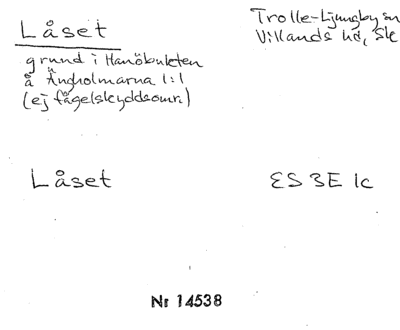 Låset
Trolle-Ljungby sn
Villands hd, Sk
grund i Hanöbukten
å Ängholmarna 1:1
(ej fågelskyddsomr.)
Låset
ES 3E 1c
Nr 14538